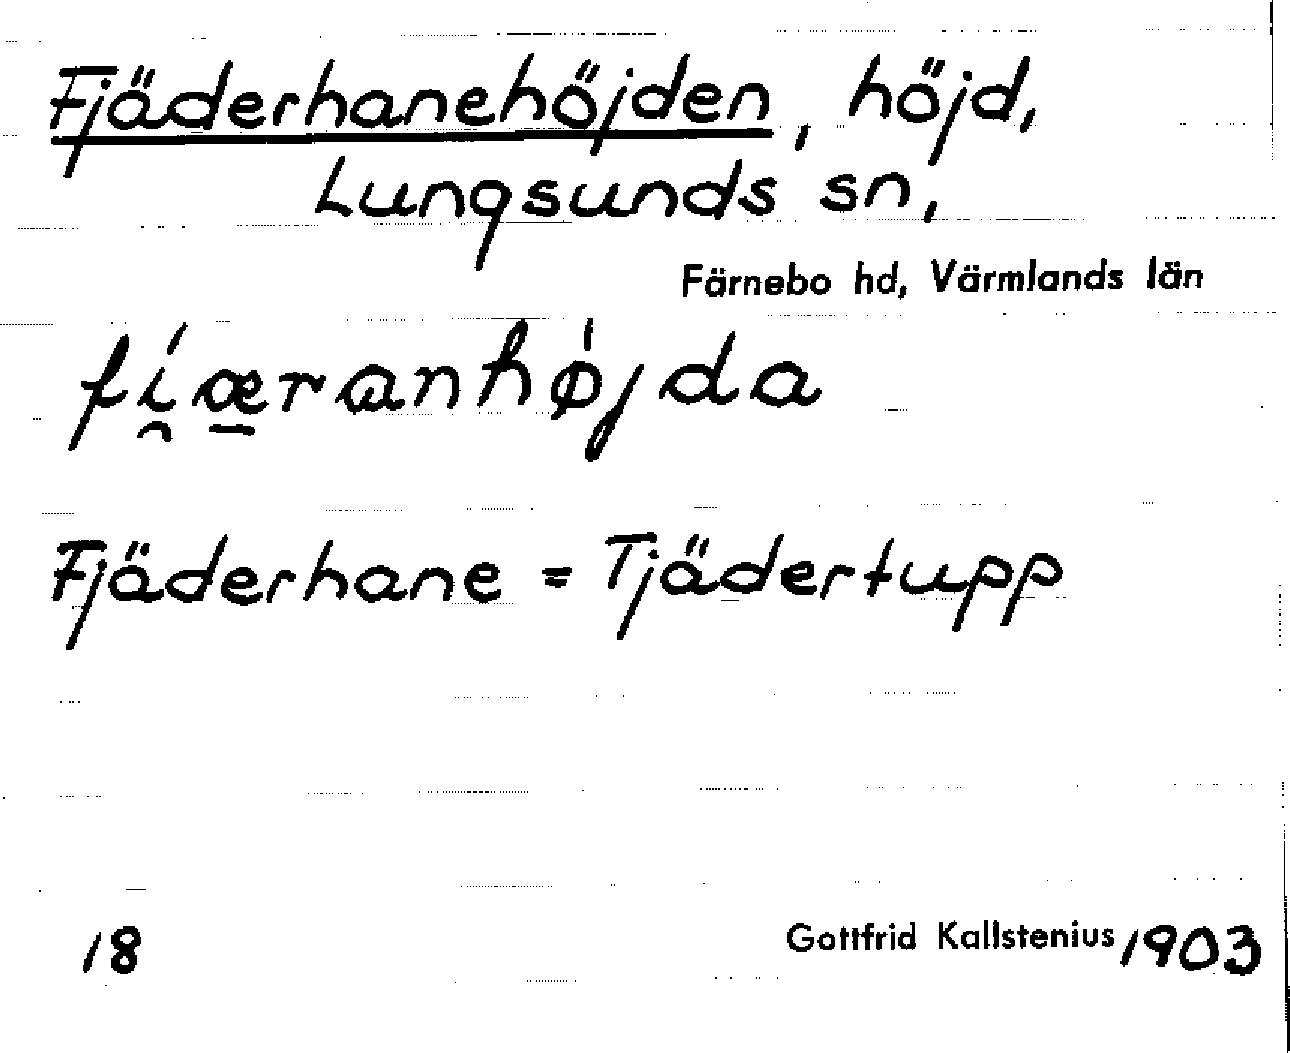 Fjäderhanehöjden, höjd,
Lungsunds sn,
Färnebo hd, Värmlands län
fi̯æ̱ranhøjda
Fjäderhane = Tjädertupp
18
Gottfrid Kallstenius 1903